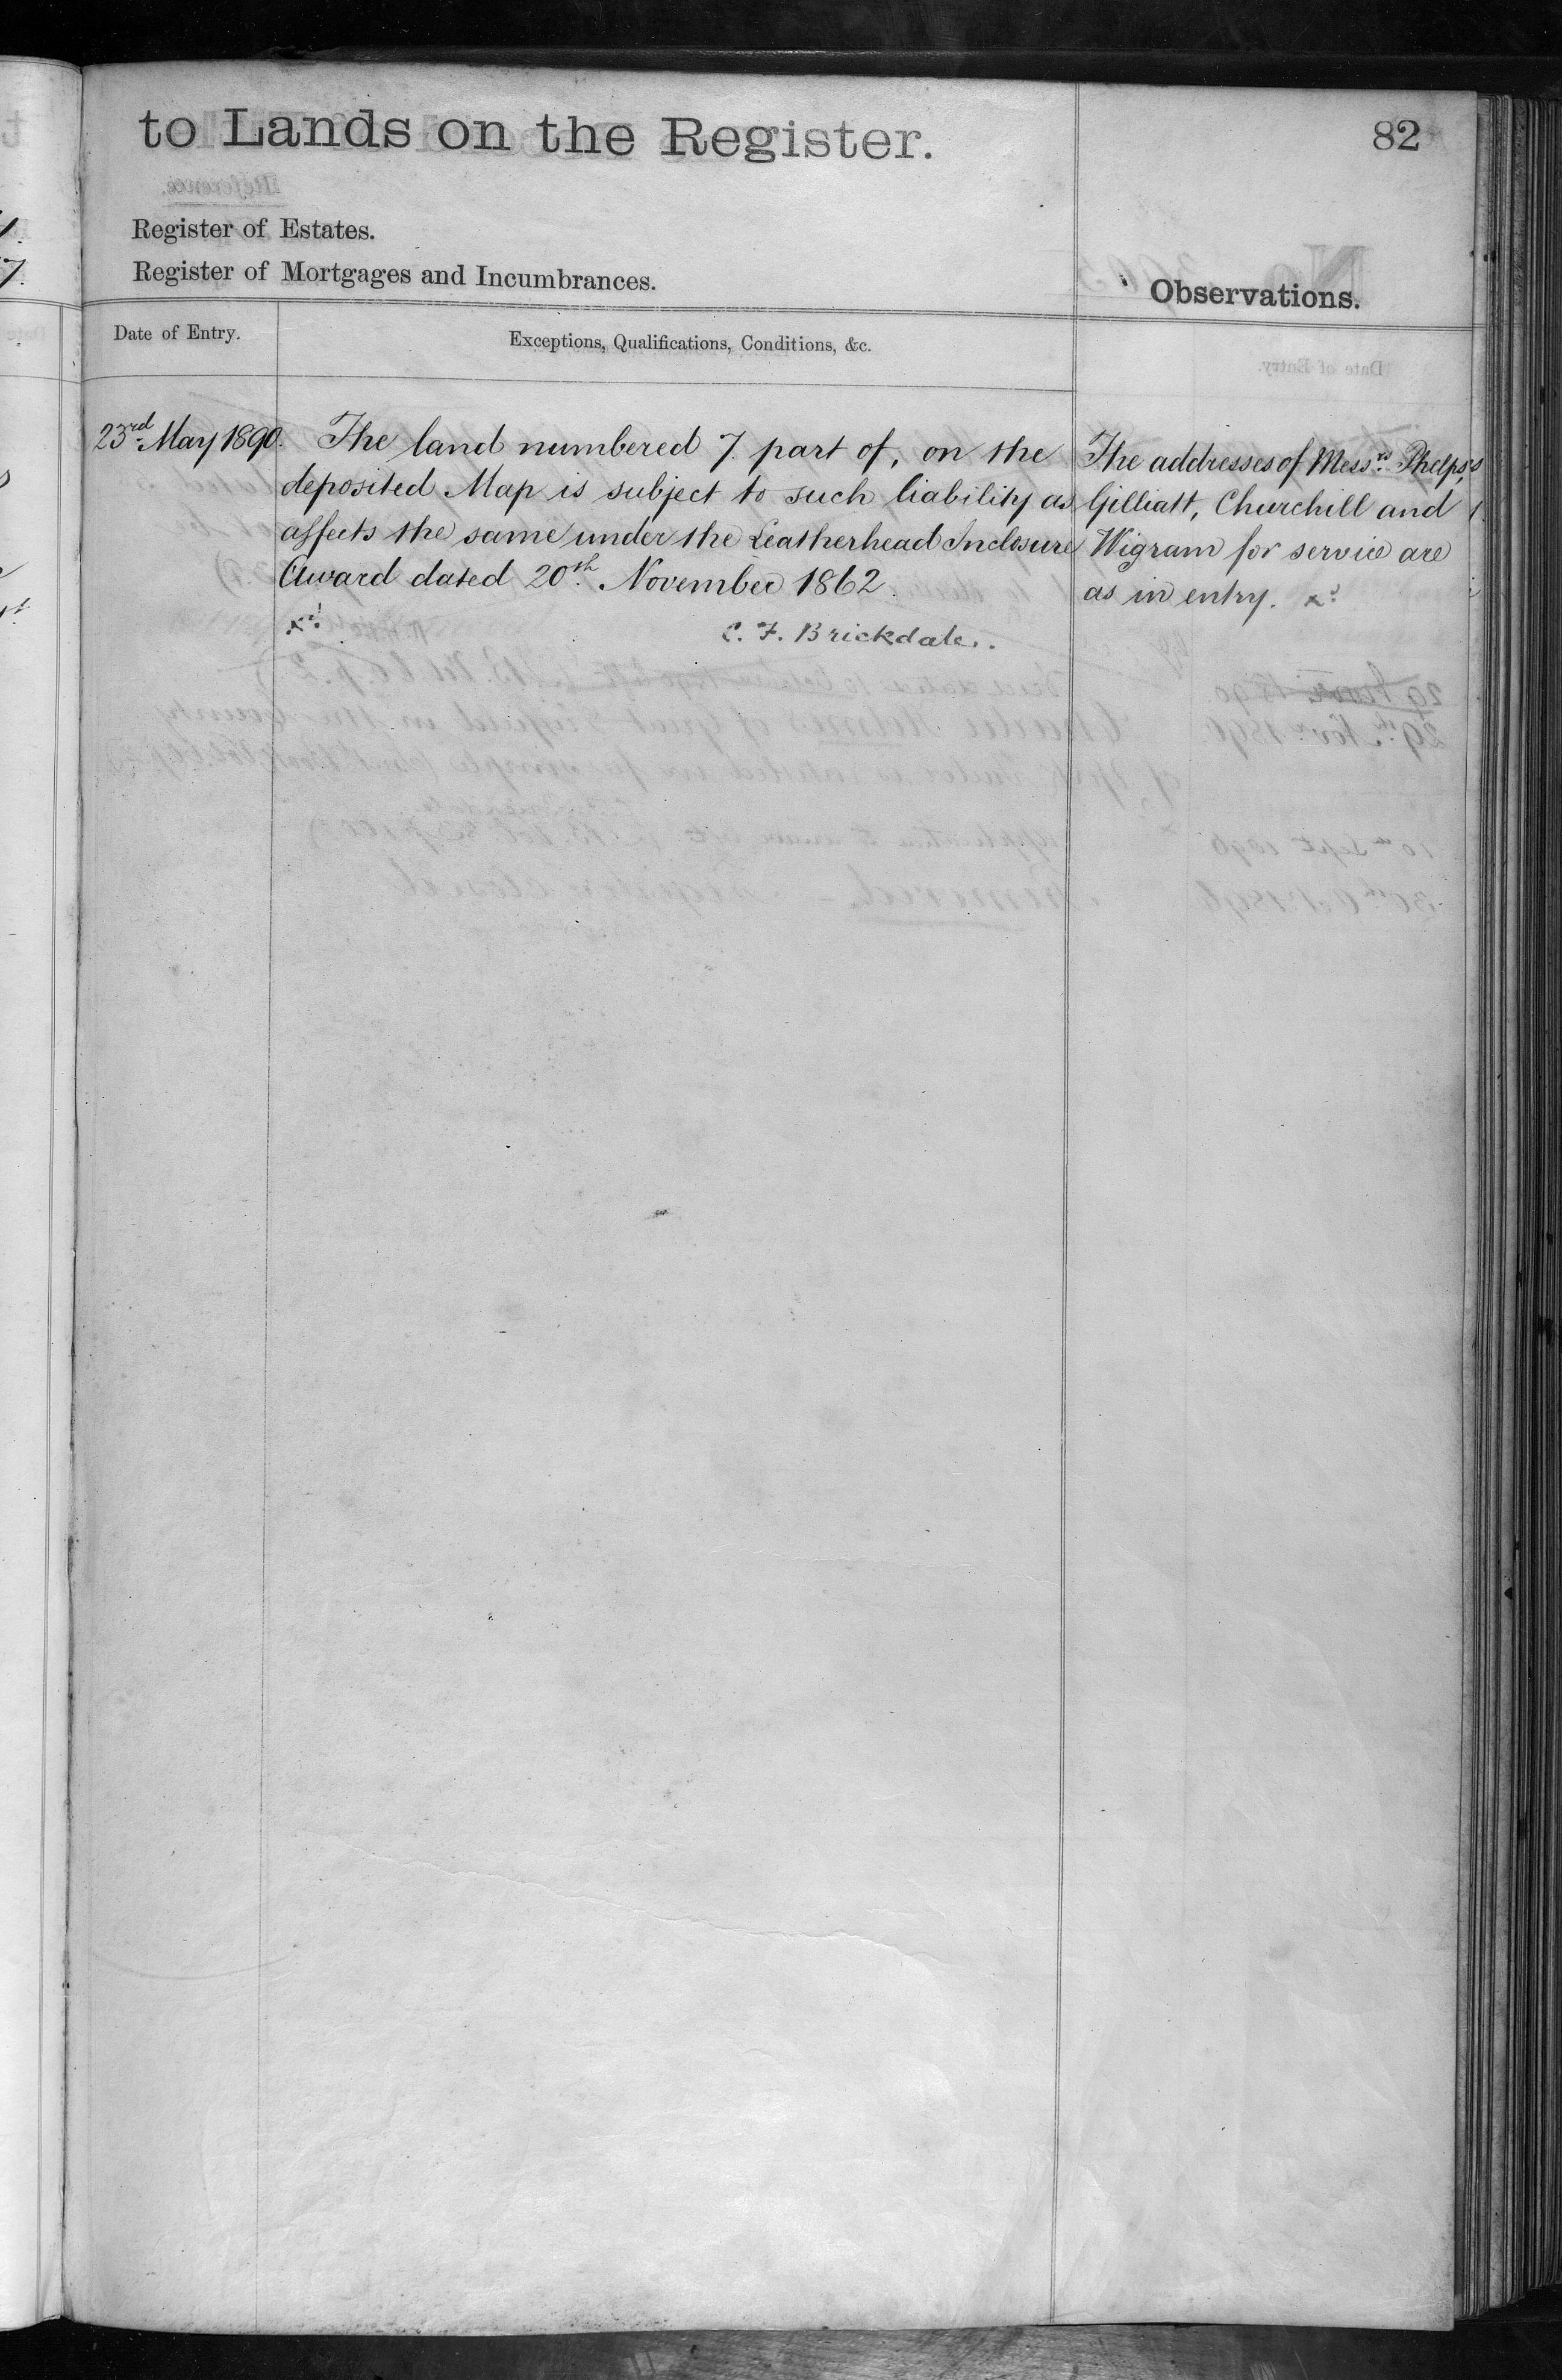 to Lands on the Register.
82
Register of Estates.
Register of Mortgages and Incumbrances.
Observations.
Date of Entry.
Exceptions, Qualifications, Conditions, &c.
23rd May 1890.
The land numbered 7 part of, on the
deposited Map is subject to such liability as
affects the same under the Leatherhead Inclosure
Award dated 20th November 1862.
C. F. Brickdale.
The addresses of Messrs Phelps,
Gilliatt, Churchill and
Wigram for service are
as in entry.